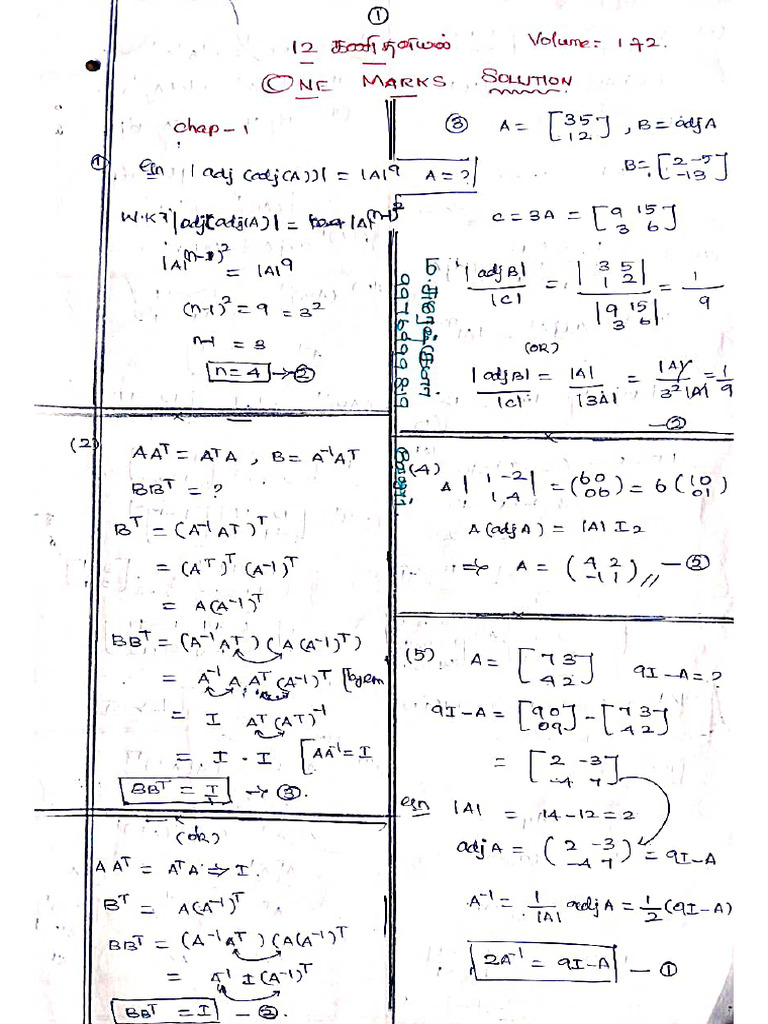 ①
12 கணிதவியல் Volume: 1 & 2.
ONE MARKS SOLUTION
Chap-1
① |adj (adj(A))| = |A|⁹ A = ?
W.K.T |adj(adj(A)| = |A|^(n-1)²
|A|^(n-1)² = |A|⁹
(n-1)² = 9 = 3²
n-1 = 3
n=4 → ②
(2) AAᵀ = AᵀA , B = A⁻¹Aᵀ
BBᵀ = ?
Bᵀ = (A⁻¹Aᵀ)ᵀ
= (Aᵀ)ᵀ (A⁻¹)ᵀ
= A(A⁻¹)ᵀ
BBᵀ = (A⁻¹Aᵀ)(A(A⁻¹)ᵀ)
= A⁻¹ A Aᵀ(A⁻¹)ᵀ
= I Aᵀ(Aᵀ)⁻¹
= I · I [AA⁻¹ = I
BBᵀ = I → ③.
(OR)
AAᵀ = AᵀA ⇒ I.
Bᵀ = A(A⁻¹)ᵀ
BBᵀ = (A⁻¹Aᵀ)(A(A⁻¹)ᵀ
= A⁻¹ I (A⁻¹)ᵀ
BBᵀ = I — ②.
③ A = [3 5
1 2] , B = adj A
B = [2 -5
-1 3]
C = 3A = [9 15
3 6]
|adj B| / |C| = |3 5
1 2| / |9 15
3 6| = 1/9
(OR)
|adj B| / |C| = |A| / |3A| = |A| / 3²|A| = 1/9
— ②
9976999819
(4) A |1 -2
1, 4| = (6 0
0 6) = 6 (1 0
0 1)
A(adj A) = |A| I₂
⇒ A = (4 2
-1 1) // — ⑤
(5) A = [7 3
4 2] 9I - A = ?
9I - A = [9 0
0 9] - [7 3
4 2]
= [2 -3
-4 7]
|A| = 14 - 12 = 2
adj A = (2 -3
-4 7) = 9I - A
A⁻¹ = 1/|A| adj A = 1/2 (9I - A)
2A⁻¹ = 9I - A — ①